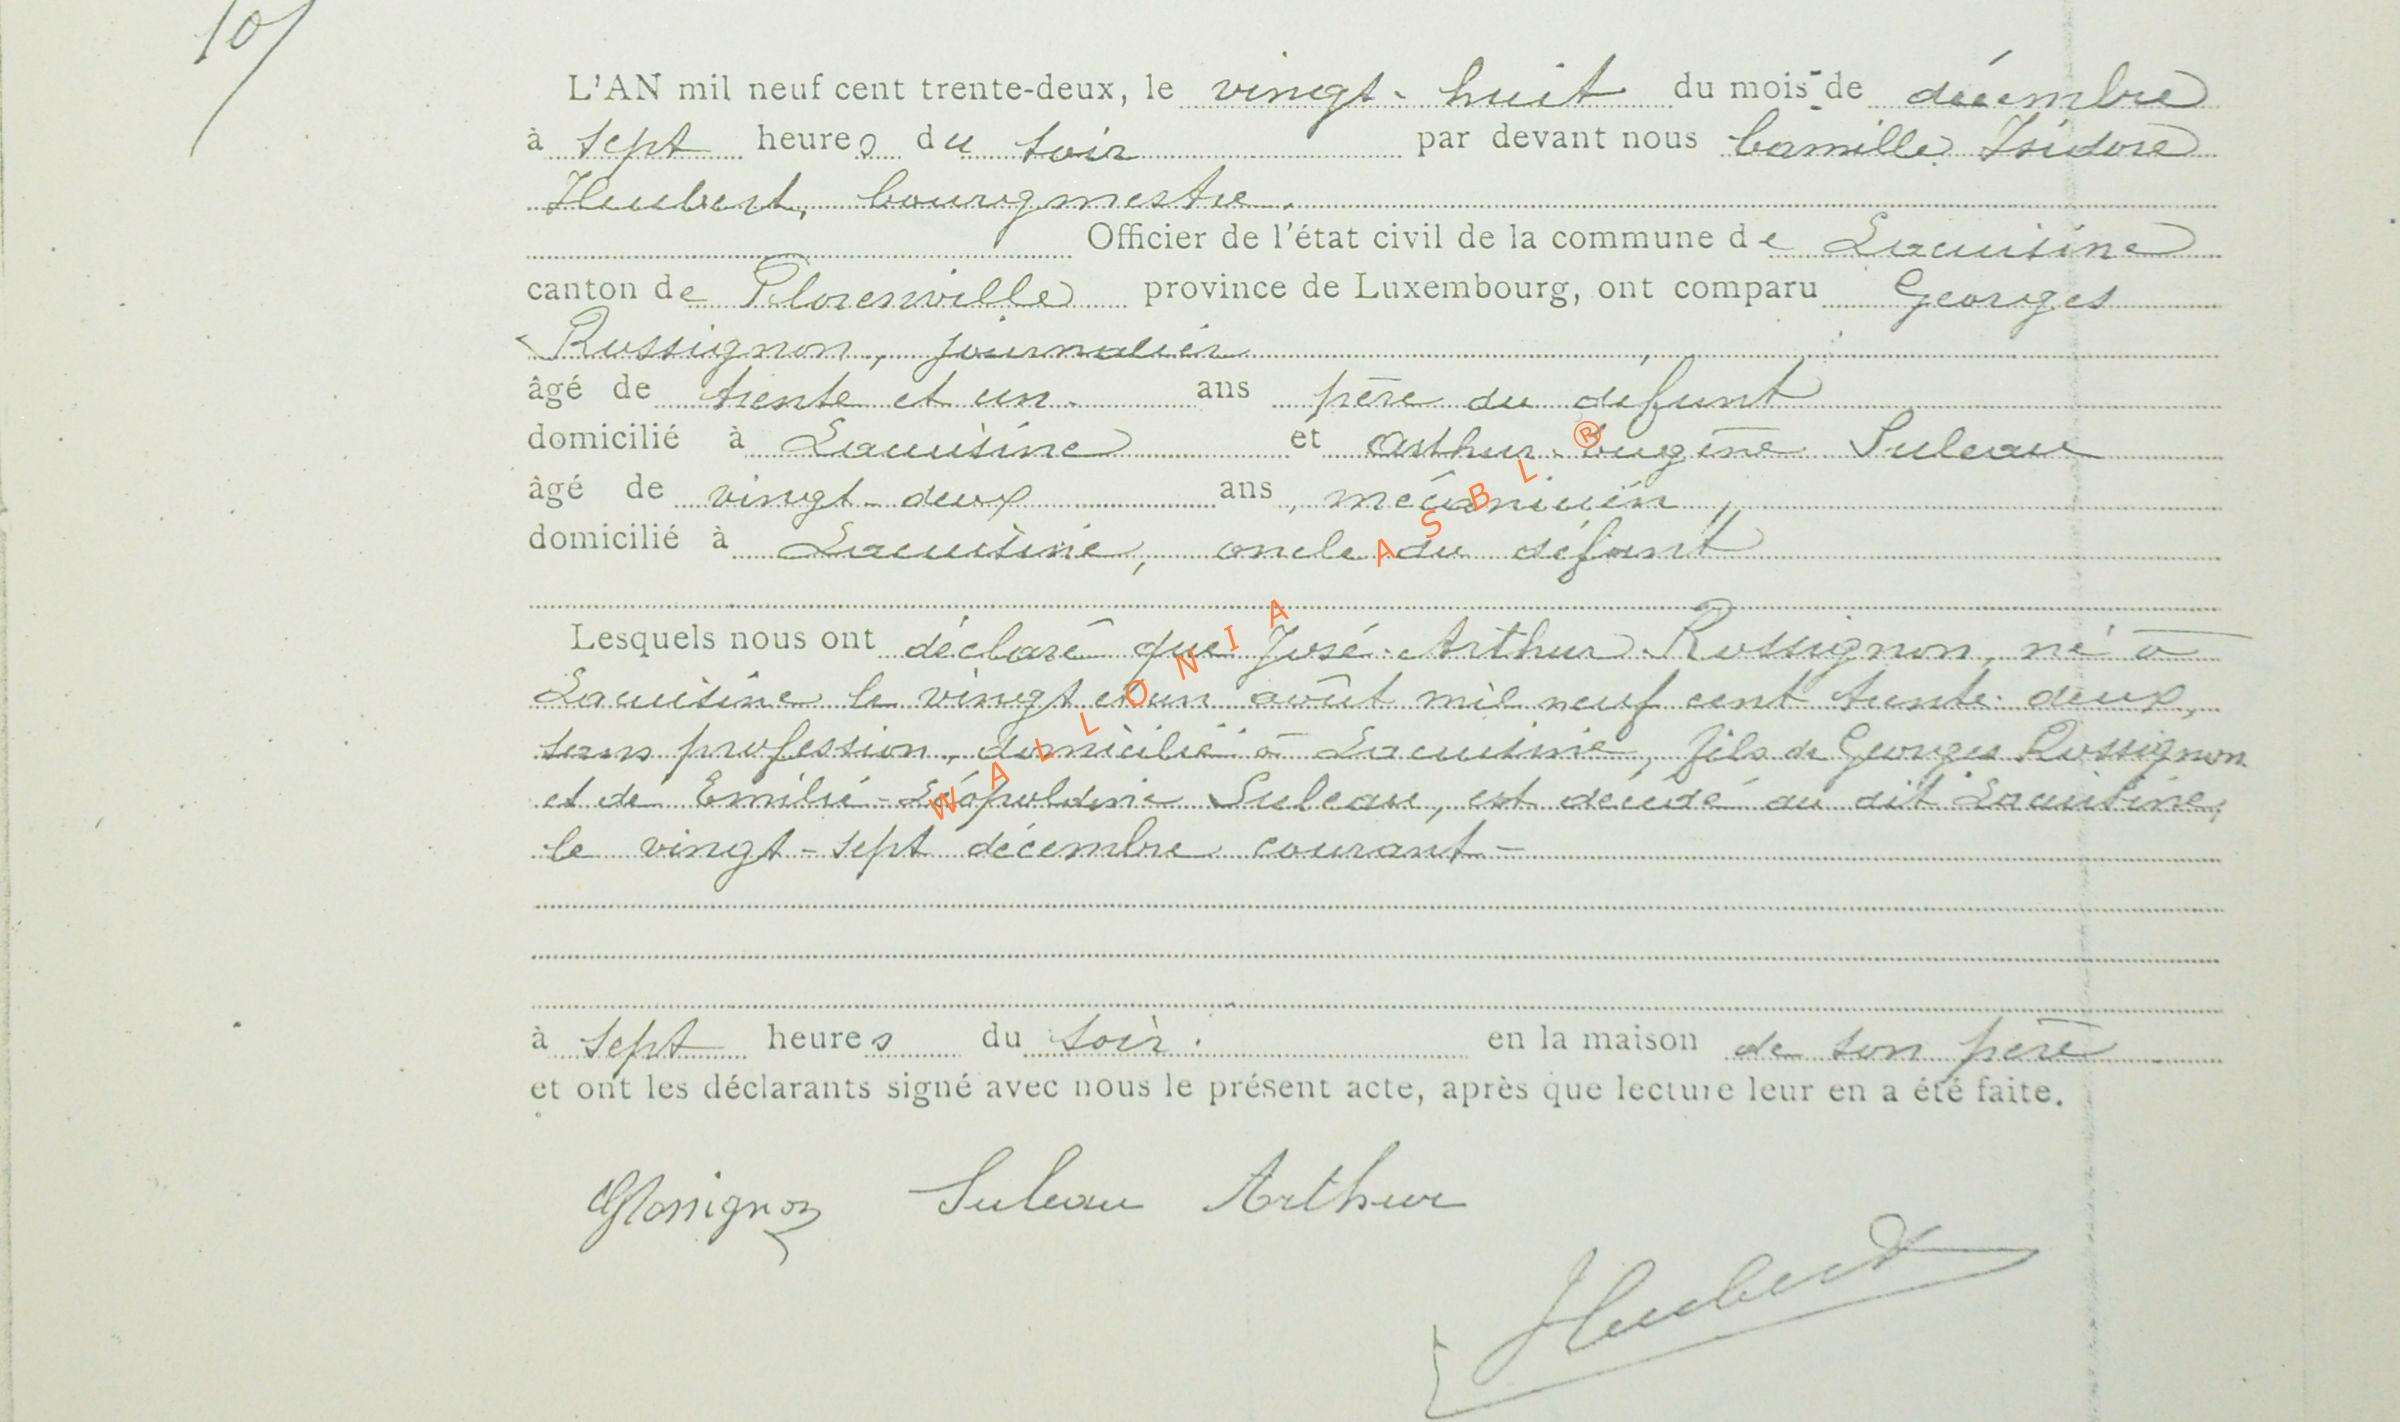 10/
L'AN mil neuf cent trente-deux, le vingt-huit du mois de décembre
à sept heures du soir par devant nous Camille Isidore
Hubert, bourgmestre.
Officier de l'état civil de la commune de Lacuisine
canton de Florenville province de Luxembourg, ont comparu Georges
Rossignon, journalier
âgé de trente et un ans père du défunt
domicilié à Lacuisine et Arthur-Eugène Suleau
âgé de vingt-deux ans, mécanicien,
domicilié à Lacuisine, oncle du défunt
Lesquels nous ont déclaré que José-Arthur Rossignon, né à
Lacuisine le vingt et un août mil neuf cent trente-deux,
sans profession, domicilié à Lacuisine, fils de Georges Rossignon
et de Emilie-Léopoldine Suleau, est décédé au dit Lacuisine,
le vingt-sept décembre courant-
à sept heures du soir. en la maison de son père
et ont les déclarants signé avec nous le présent acte, après que lecture leur en a été faite.
GRossignon Suleau Arthur
Hubert
WALLONIA ASBL ®